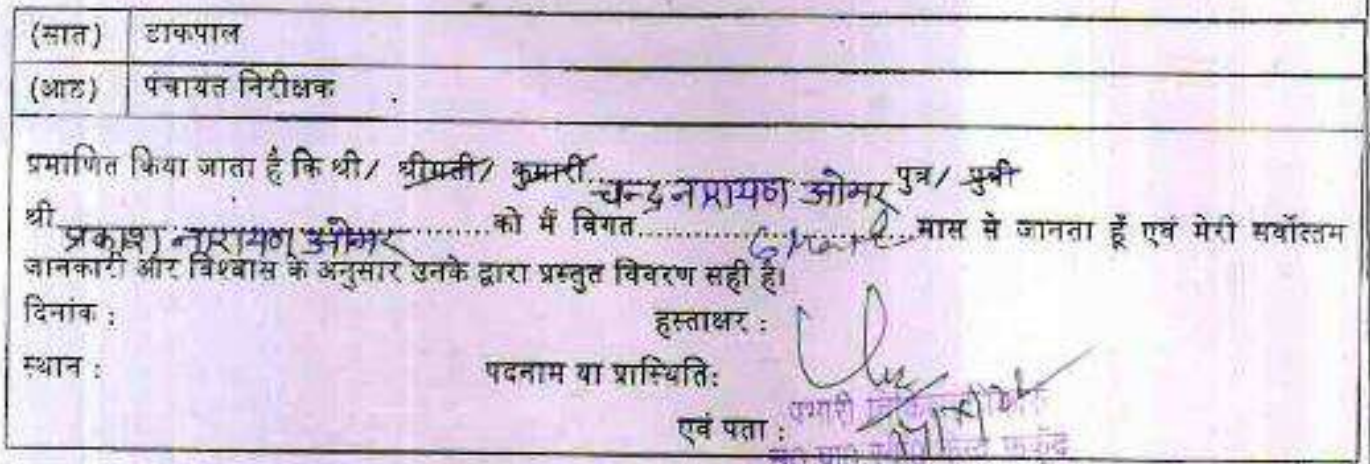 (सात) डाकपाल
(आठ) पंचायत निरीक्षक
प्रमाणित किया जाता है कि श्री/ श्रीमती/ कुमारी..चन्द्र नारायण ओमर पुत्र/ पुत्री
श्री प्रकाश नारायण ओमर..........को मैं विगत....................मास से जानता हूँ एवं मेरी सर्वोत्तम
जानकारी और विश्वास के अनुसार उनके द्वारा प्रस्तुत विवरण सही है।
दिनांक :
हस्ताक्षर :
स्थान :
पदनाम या प्रास्थिति:
एवं पता :
प्रभारी